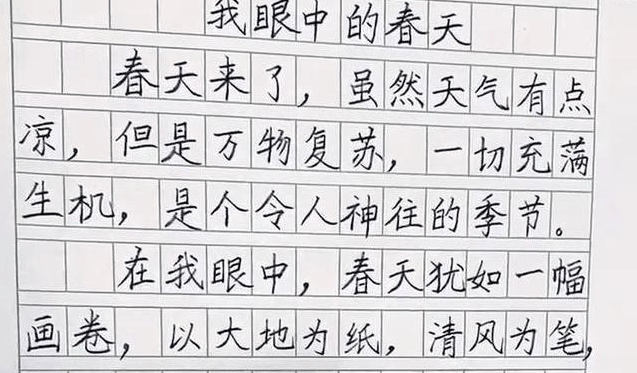 我眼中的春天
春天来了，虽然天气有点
凉，但是万物复苏，一切充满
生机，是个令人神往的季节。
在我眼中，春天犹如一幅
画卷，以大地为纸，清风为笔，